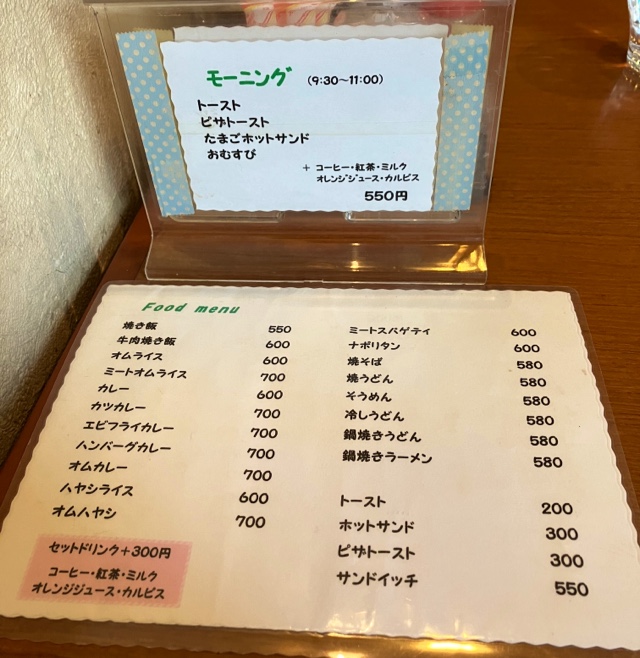 モーニング (9:30～11:00)
トースト
ピザトースト
たまごホットサンド
おむすび
+ コーヒー・紅茶・ミルク
オレンジジュース・カルピス
550円
Food menu
焼き飯 550
牛肉焼き飯 600
オムライス 600
ミートオムライス 700
カレー 600
カツカレー 700
エビフライカレー 700
ハンバーグカレー 700
オムカレー 700
ハヤシライス 600
オムハヤシ 700
セットドリンク+300円
コーヒー・紅茶・ミルク
オレンジジュース・カルピス
ミートスパゲティ 600
ナポリタン 600
焼そば 580
焼うどん 580
そうめん 580
冷しうどん 580
鍋焼きうどん 580
鍋焼きラーメン 580
トースト 200
ホットサンド 300
ピザトースト 300
サンドイッチ 550